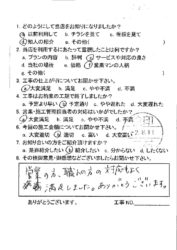 1. どのようにして当店をお知りになりましたか?
a 以前利用して b チラシを見て c 看板を見て
d 知人の紹介 e その他(
2. 当店を利用するにあたって重視したことは何ですか?
a プランの内容 b 評判 c サービスや対応の良さ
d 当社の場所 e 価格 f 営業マンの人柄
g その他(
3. 工事の仕上がりについてお聞かせ下さい。
a 大変満足 b 満足 c やや不満 d 不満
4. 工事はお約束の工期で終了しましたか?
a 予定より早い b 予定通り c やや遅れた d 大変遅れた
5. 営業・施工管理担当者の対応はいかがでしたか?
a 大変満足 b 満足 c やや不満 d 不満
6. 今回の施工金額についてお聞かせ下さい。
a 大変適切 b 適切 c 高い d 大変高い
7. お知り合いの方をご紹介頂けますか?
a 是非紹介したい b 紹介したい c 分からない d したくない
8. その他御意見・御感想などございましたらお聞かせ下さい。
営業の方、職人の方の対応もよく
満足しました。ありがとうございます。
ありがとうございます。 工事NO.